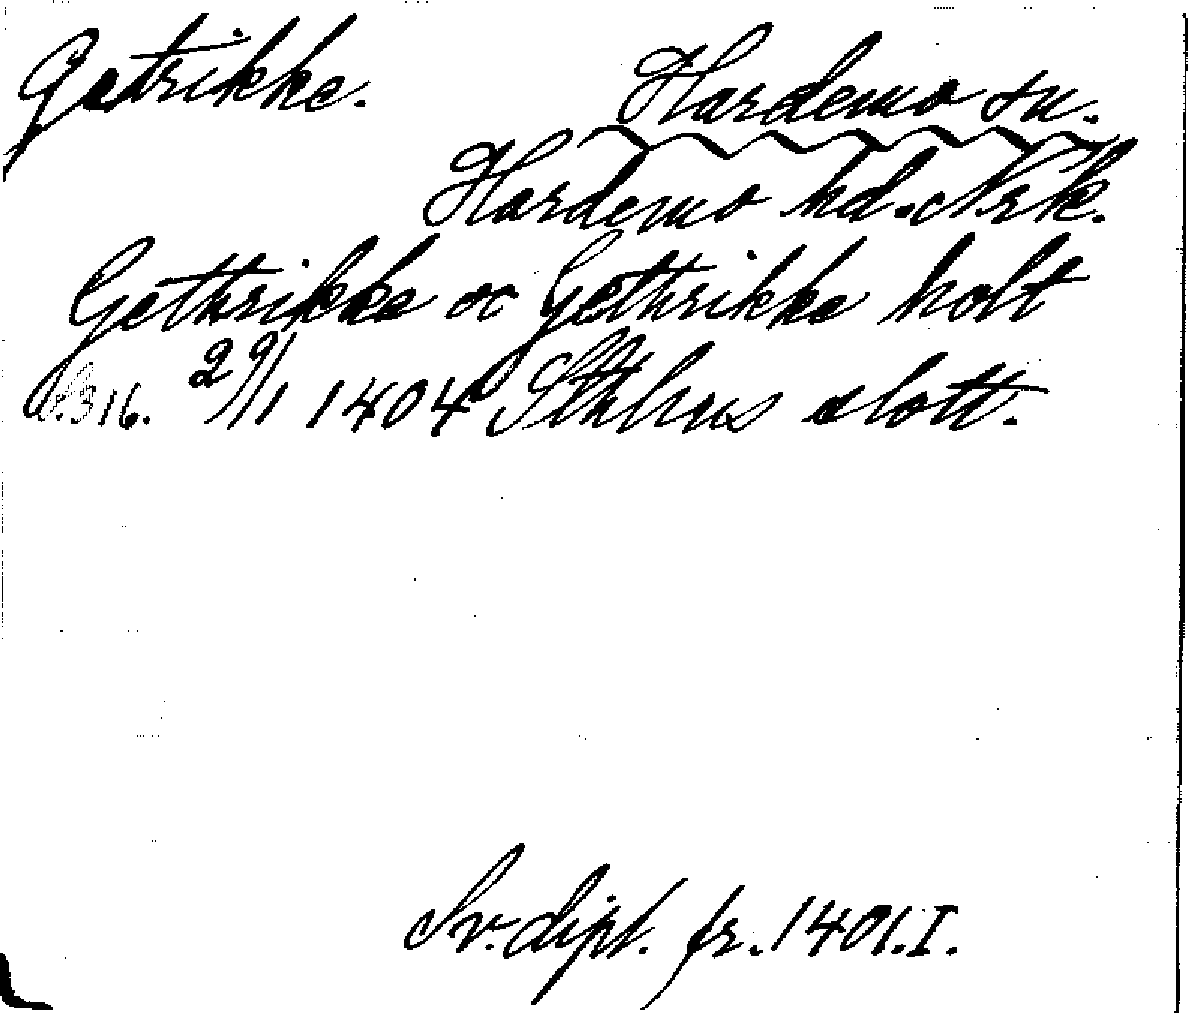 Getrikke.
Hardemo sn.
Hardemo hd. Nrk.
Gethrikke oc Gethrikke holt
s.316. 29/1 1404 Sthlms slott.
Sv. dipl. fr. 1401. I.